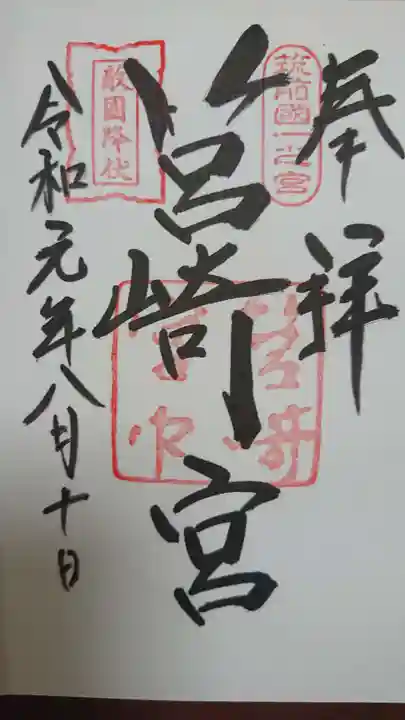 奉拝
筑前國一之宮
筥崎宮
敵國降伏
令和元年八月十日